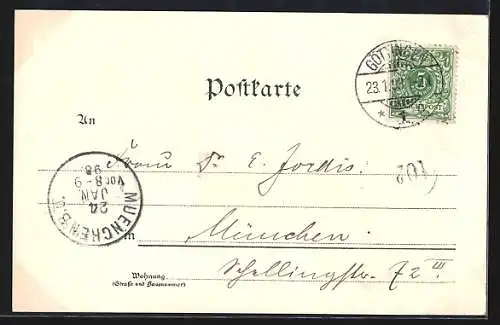 GÖTTINGEN
23.1.
5
REICHSPOST
Postkarte
An
Frau Dr. E. Jordis.
102
MUENCHEN B.
24
JAN
98
Vor 8-9
in München.
Wohnung
(Straße und Hausnummer)
Schellingstr. 72 III